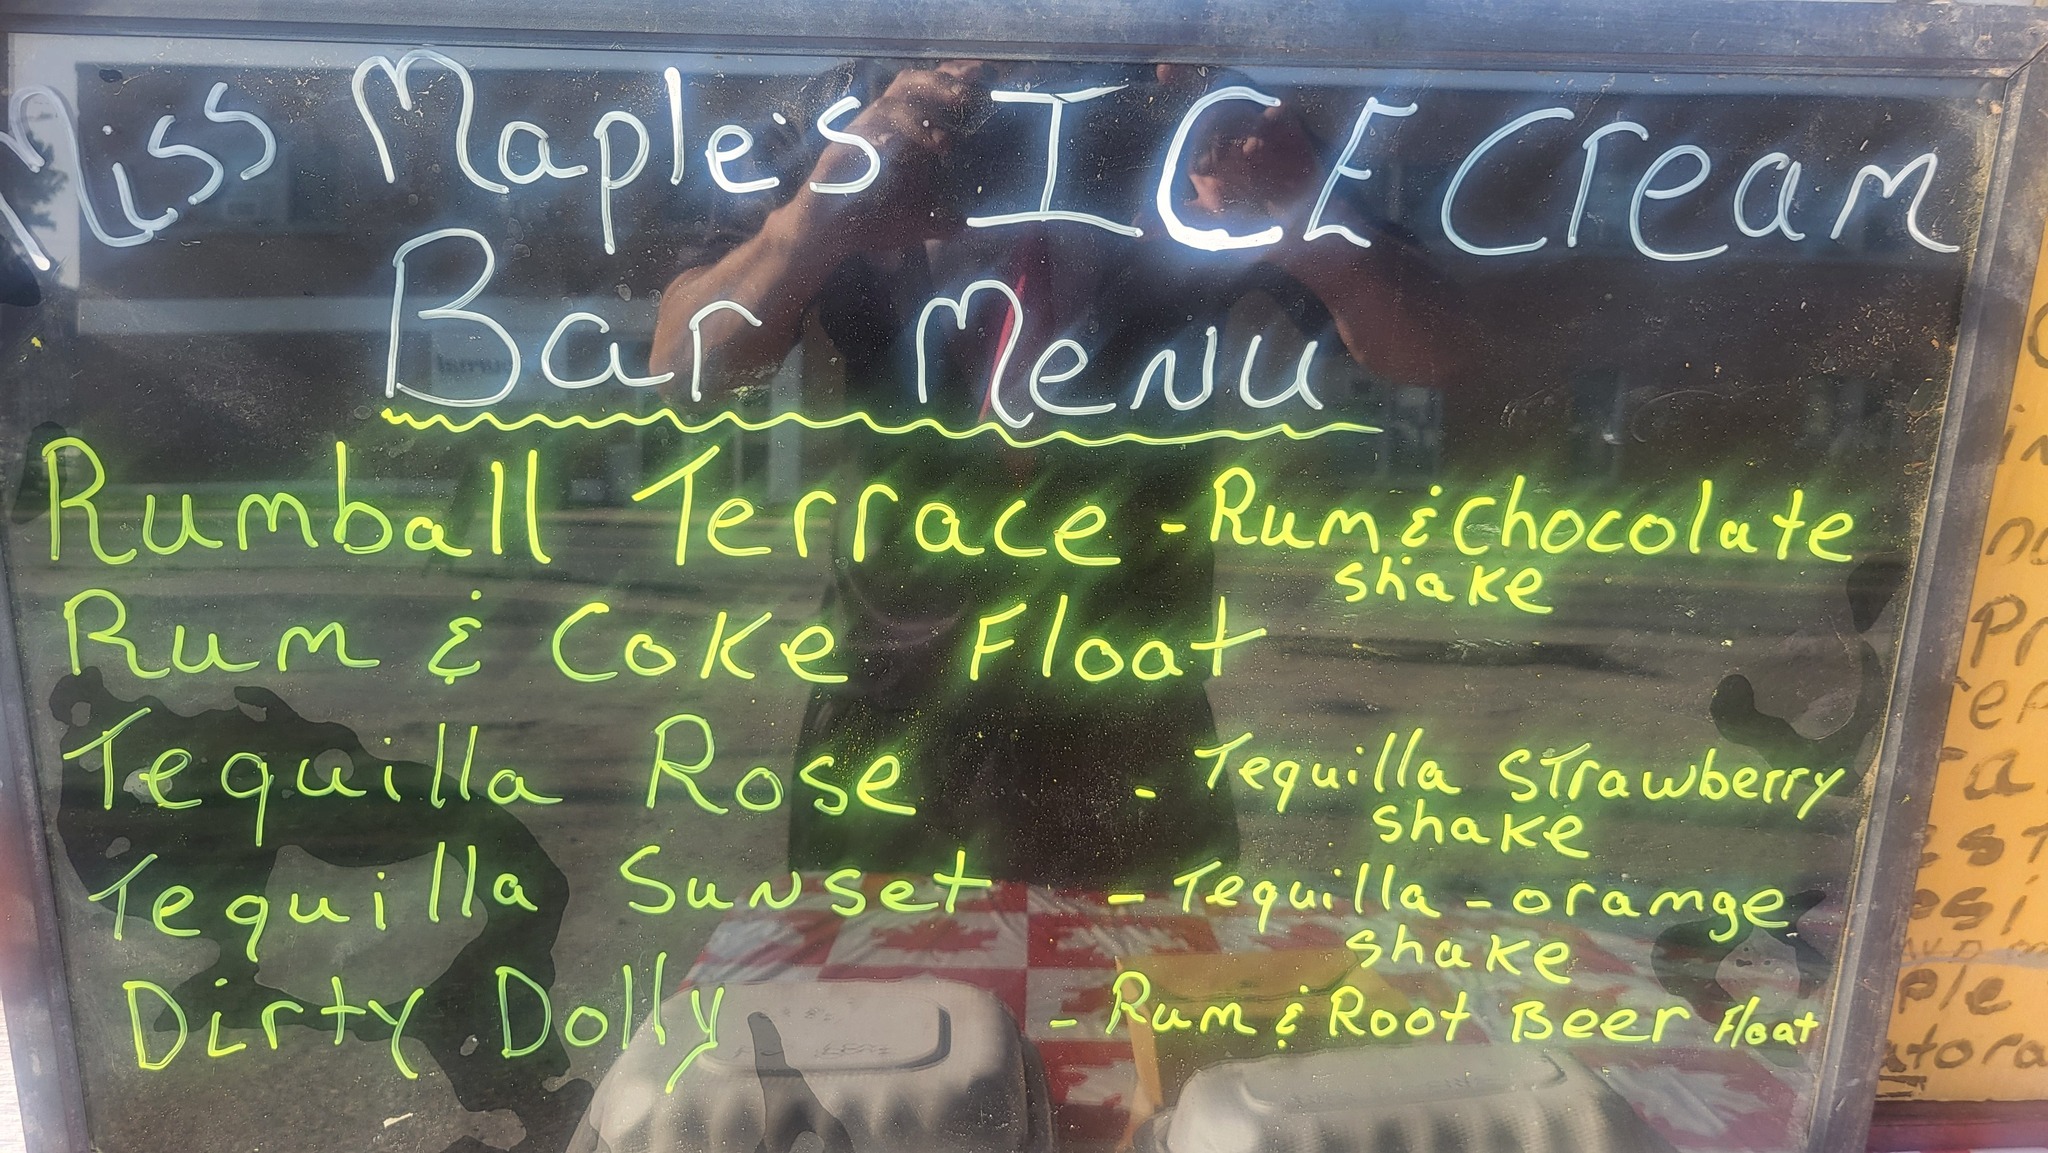 Miss Maple's ICE Cream
Bar Menu
Rumball Terrace - Rum & Chocolate
shake
Rum & Coke Float
Tequilla Rose - Tequilla Strawberry
shake
Tequilla Sunset - Tequilla - orange
shake
Dirty Dolly - Rum & Root Beer Float